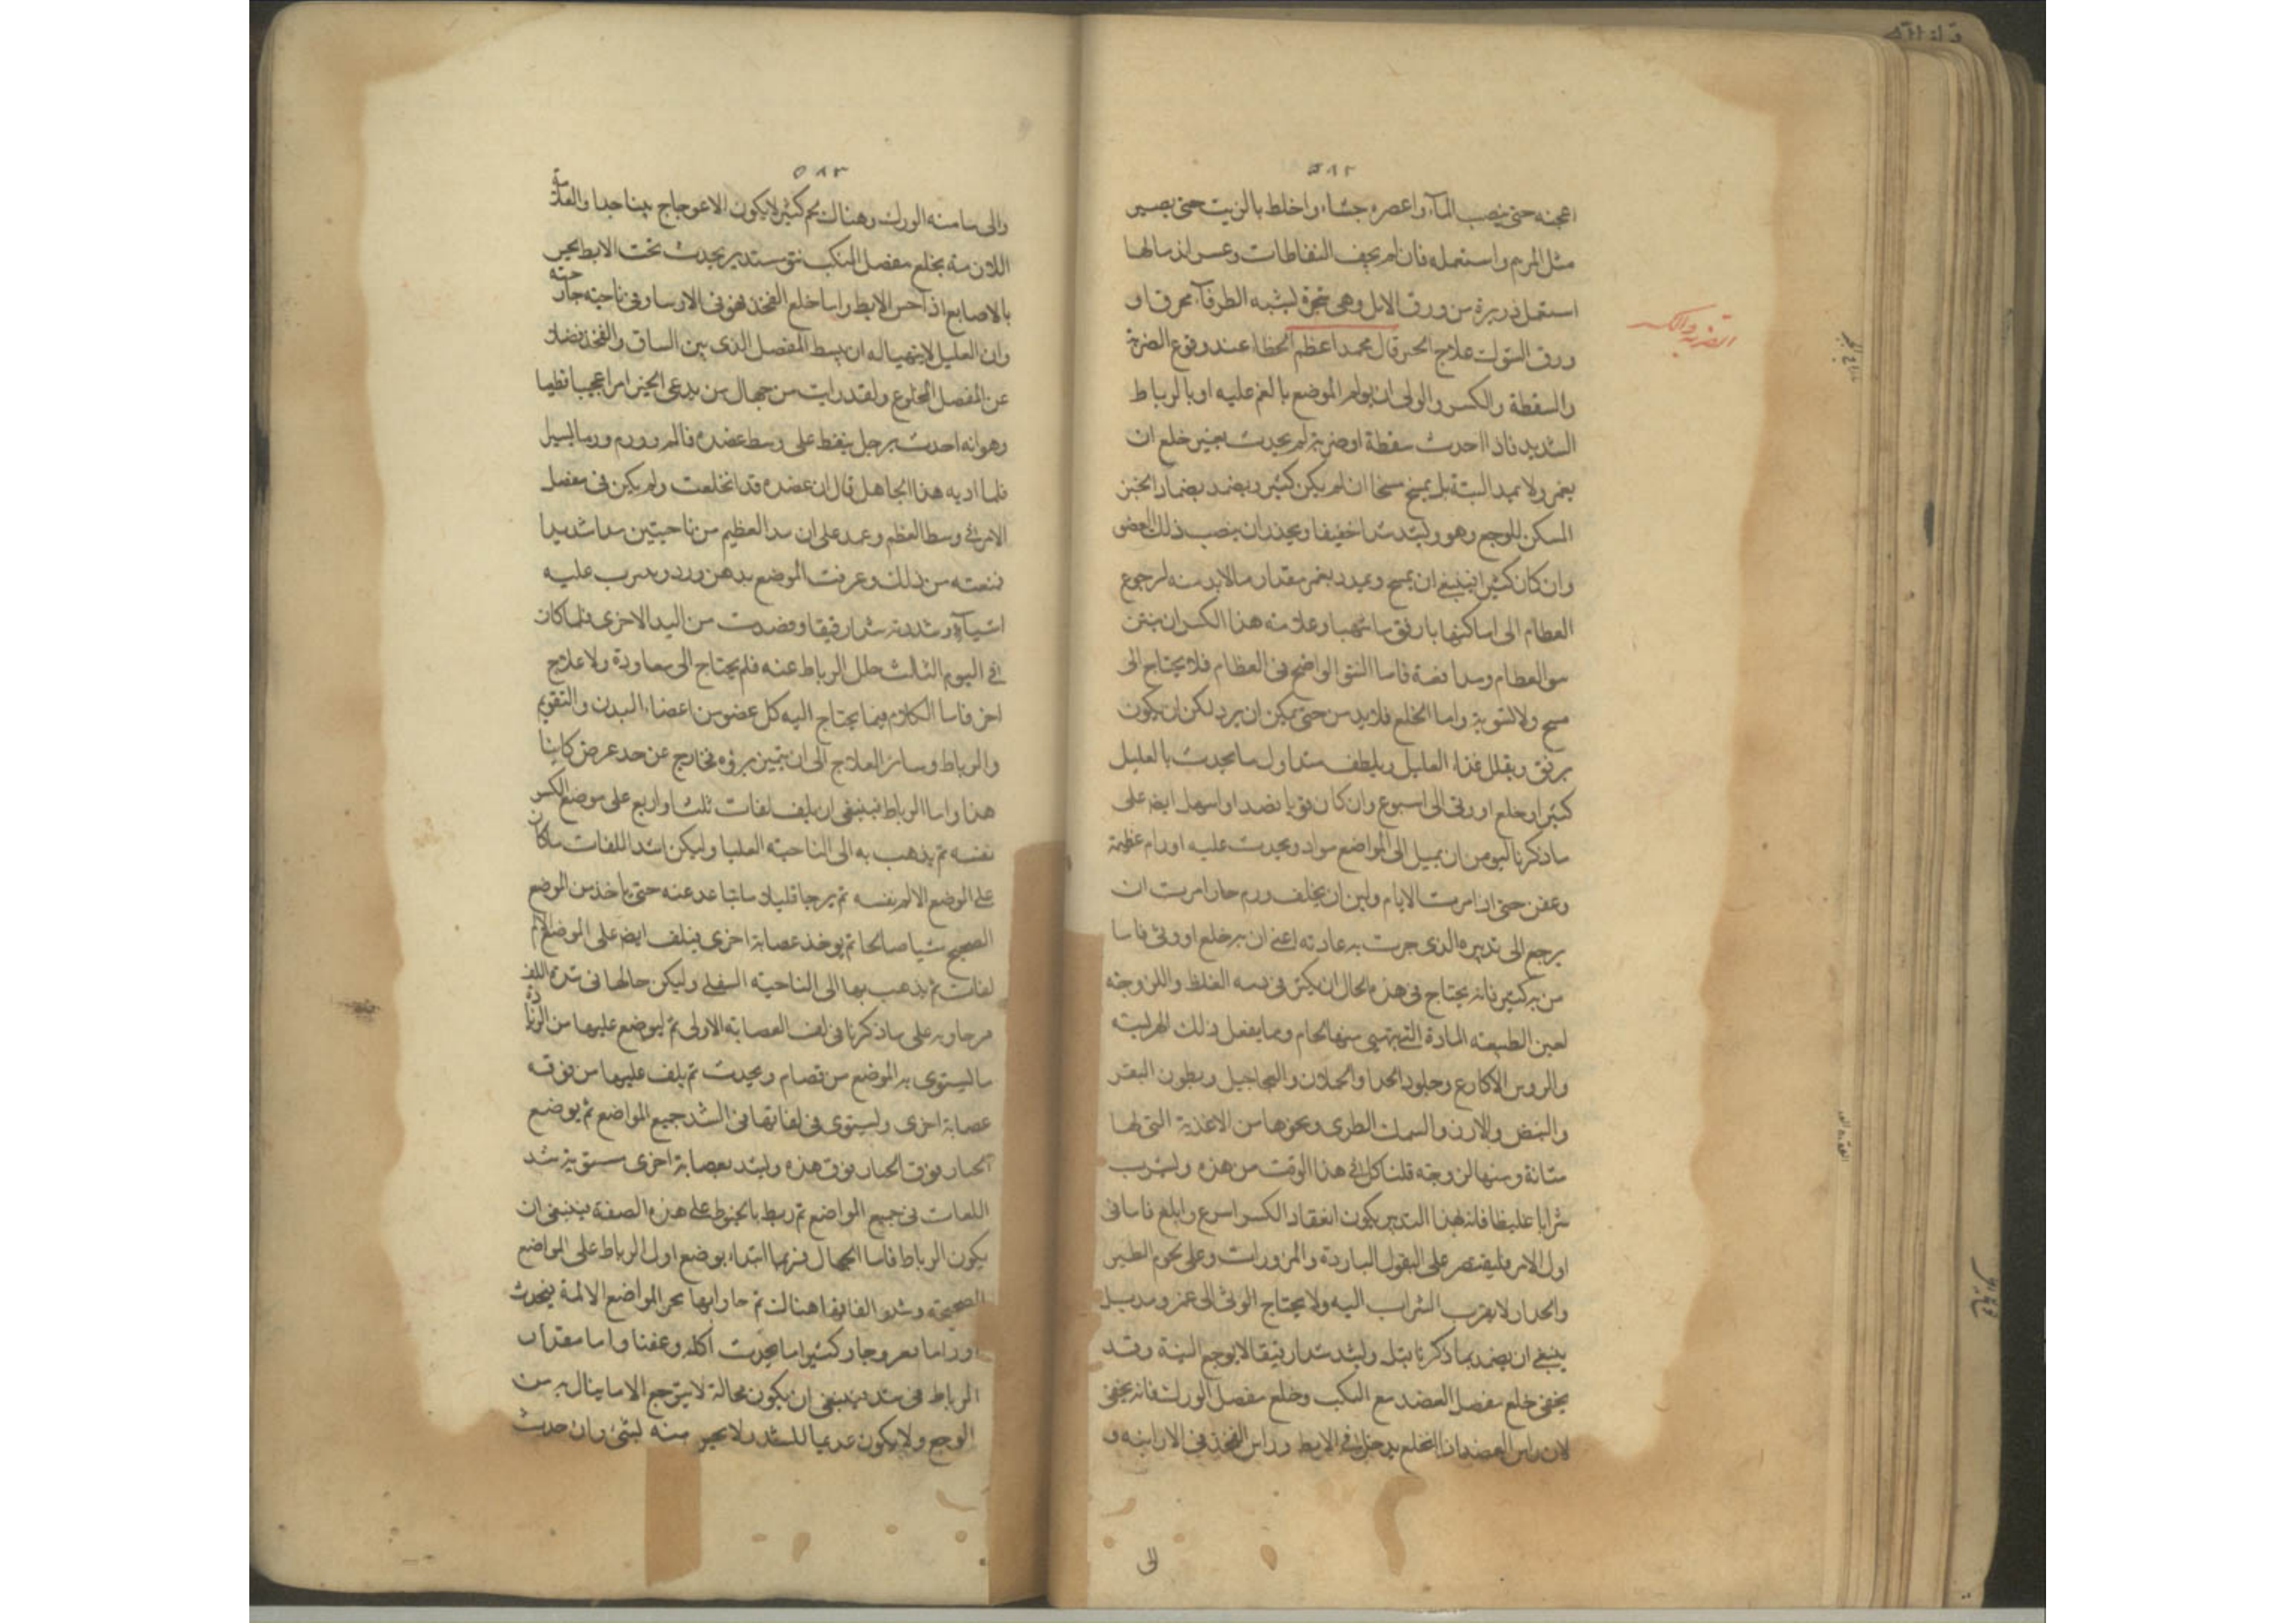 ٥٨٢
اعجنه حتى ينصب الماء واعصره جشاء واخلط بالزيت حتى يصير
مثل المرهم واستعمله فان لم يجف النفاطات وعسر اندمالها
استعمل ذريرة من ورق الابل وهى شجرة يشبه الطرفاء محرق او
ورق التوت علاج الجبر قال محمد اعظم الخطا عند وقوع الضربة
والسقطة والكسر والوثى ان يولم الموضع بالغمز عليه او بالرباط
الشديد فاذا احدث سقطة او ضربة لم يحدث بغير خلع ان
يغمز ولا يمد البتة بل يمسح مسحا ان لم يكن كثير ويضمد بضماد الجبر
المسكن للوجع وهو ويشد شدا خفيفا ويحذر ان ينصب ذلك العضو
وان كان كثيرا فينبغى ان يمسح ويمدد بغمز مقدار ما لابد منه لرجوع
العظام الى اماكنها بارفق ما تهيا وعلامة هذا الكسر ان يتبين
العظام ومدافعة فاما النتو الواضح فى العظام فلا يحتاج الى
مسح ولا لتسوية واما الخلع فلابد من حتى يمكن ان يرد لكن ان يكون
برفق ويقلل غذاء العليل ويلطف متى اول ما يحدث بالعليل
كثير او خلع او وثى الى اسبوع وان كان قويا فصد او اسهل ايضا على
ما ذكرنا ليومن ان يميل الى المواضع مواد ويحدث عليه اورام عظيمة
وعفن حتى اذا مرت الايام وامن ان يخلف ورم حار امرت ان
يرجع الى تدبيره الذى جرت به عادته اعنى ان به خلع او وثى فاما
من به كسر فانه يحتاج فى هذه الحال ان يكثر فى دمه الغلظ واللزوجة
لعين الطبيعة المادة التى تهيى منها لحام ومما يفعل ذلك الهريسة
والروس الاكارع وجلود الجدا والحملان والعجاجيل وبطون البقر
والبيض والارز والسمك الطرى ونحوها من الاغذية التى لها
متانة ومنها لزوجة قلنا كل فى هذا الوقت من هذه وليشرب
شرابا غليظا فان بهذا التدبير يكون انعقاد الكسر اسرع وابلغ فاما فى
اول الامر فليقتصر على البقول الباردة والمزورات وعلى لحوم الطير
والجدا ولا يقرب الشراب اليه ولا يحتاج الوثى الى غمز ومد بل
ينبغى ان يضمد بما ذكرنا قبل وليشد شدا رفيقا لا يوجع البتة وقد
يخفى خلع مفصل العضد مع المنكب وخلع مفصل الورك فانه يخفى
لان راس العضد اذا انخلع يدخل فى الابط وراس الفخذ فى الاربية و
الى
الضربة والكسر
٥٨٣
والى ما منه الورك وهناك لحم كثير لا يكون الاعوجاج بينا جدا والعلامة
اللازمة بخلع مفصل المنكب نتو مستدير يحدث تحت الابط يحس
بالاصابع اذا حس الابط واما خلع الفخذ فنتو فى الارسا وفى ناحيته
وان العليل لا يتهيا له ان يبسط المفصل الذى بين الساق والفخذ فضلا
عن المفصل المخلوع ولقد رايت من جهال من يدعى الجبر امرا عجيبا فظيعا
وهو انه احدث برجل سقط على وسط عضده فالم وورم ورما يسيرا
فلما راه هذا الجاهل قال ان عضده قد انخلعت ولم يكن فى مفصل
الامر فى وسط العظم وعمد على ان مد العظيم من ناحيتين مدا شديدا
فمنعته من ذلك وعرقت الموضع بدهن ورد وصب عليه
اشياء وشددته شدا رفيقا وفصدت من اليد الاخرى فلما كان
فى اليوم الثالث حلل الرباط عنه فلم يحتاج الى معاودة ولا علاج
اخر فاما الكلام فيما يحتاج اليه كل عضو من اعضاء البدن والتقويم
والرباط وسائر العلاج الى ان يتبين برؤه فخارج عن حد غرض كتابنا
هذا واما الرباط فينبغى ان يلف لفات ثلث او اربع على موضع الكسر
نفسه ثم يذهب به الى الناحية العليا وليكن اشد اللفات ما كان
على الموضع الالم نفسه ثم يرخا قليلا ما تباعد عنه حتى ياخذ من الموضع
الصحيح شيا صالحا ثم يوخذ عصابة اخرى فيلف ايضا على الموضع الالم
لفات ثم يذهب بها الى الناحية السفلى وليكن حالها فى شدة اللف
مرخاوه على ما ذكرنا فى لف العصابة الاولى ثم ليوضع عليها من الرفادة
ما يستوى به الموضع من قصام ويحدث ثم يلف عليها من فوقه
عصابة اخرى وليستوى فى لفاتها فى الشد جميع المواضع ثم يوضع
الجبار فوق الجبار فوق هذه وليشد بعصابة اخرى مستوية شد
اللفات فى جميع المواضع ثم ربط بالخيوط على هذه الصفة ينبغى ان
يكون الرباط فاما الجهال فربما ابتداء بوضع اول الرباط على المواضع
الصحيحة وشدوا لفائفها هناك ثم جاوا بها نحو المواضع الالمة فيحدث
اوراما كثيرا ما يحدث اكله وعفنا واما مقدار
الرباط فى شده ينبغى ان يكون بحالة لا يتوجع الا ما ينال به من
الوجع ولا يكون عديما للشد ولا يحس منه لشئ وان حدث